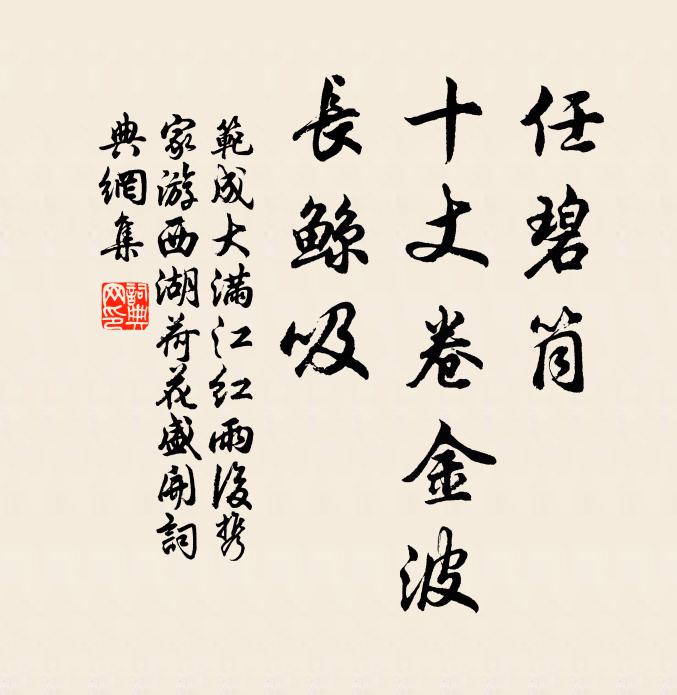 任碧筩
十丈卷金波
長鯨吸
範成大滿江紅雨後攜
家游西湖荷花盛開詞
典網集
詞典
网印